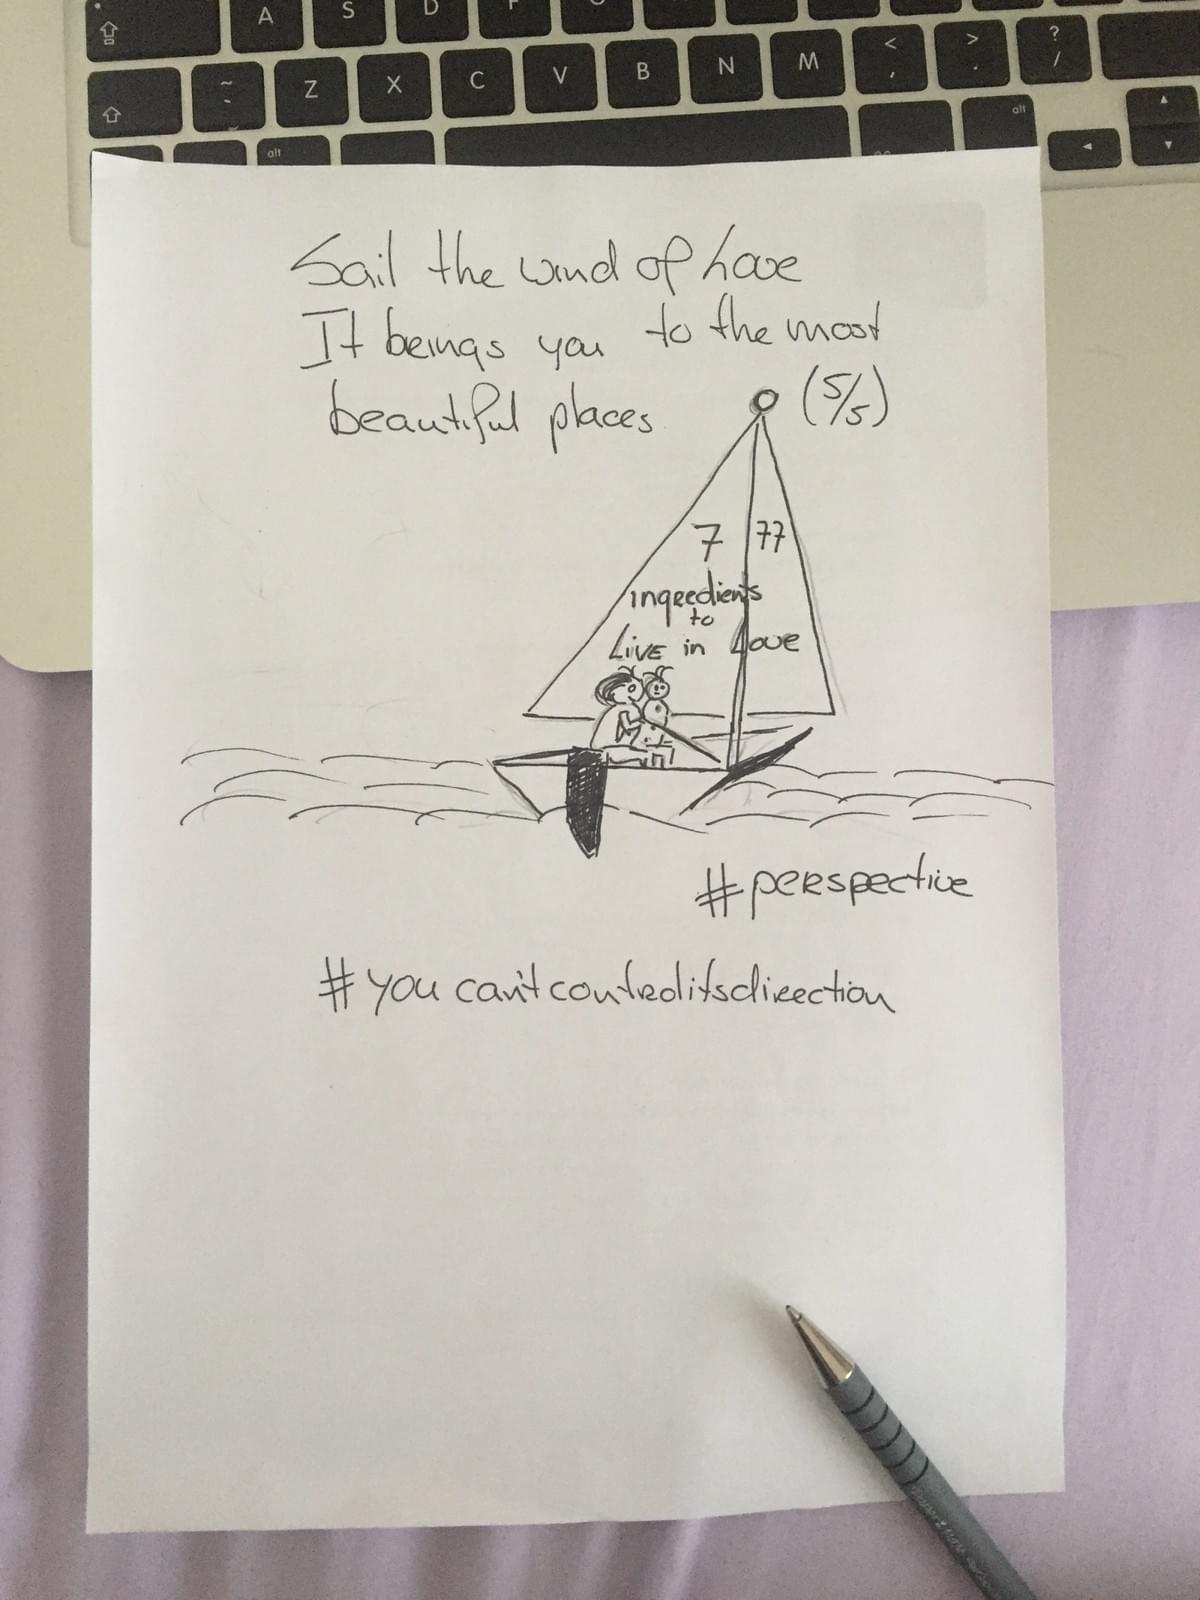 A S D F
~ Z X C V B N M < , > . ? /
alt alt
Sail the wind of Love
It brings you to the most
beautiful places (5/5)
7 77
ingredients
to
LiVE in Love
#perspective
#you can'tcontrolitsdirection